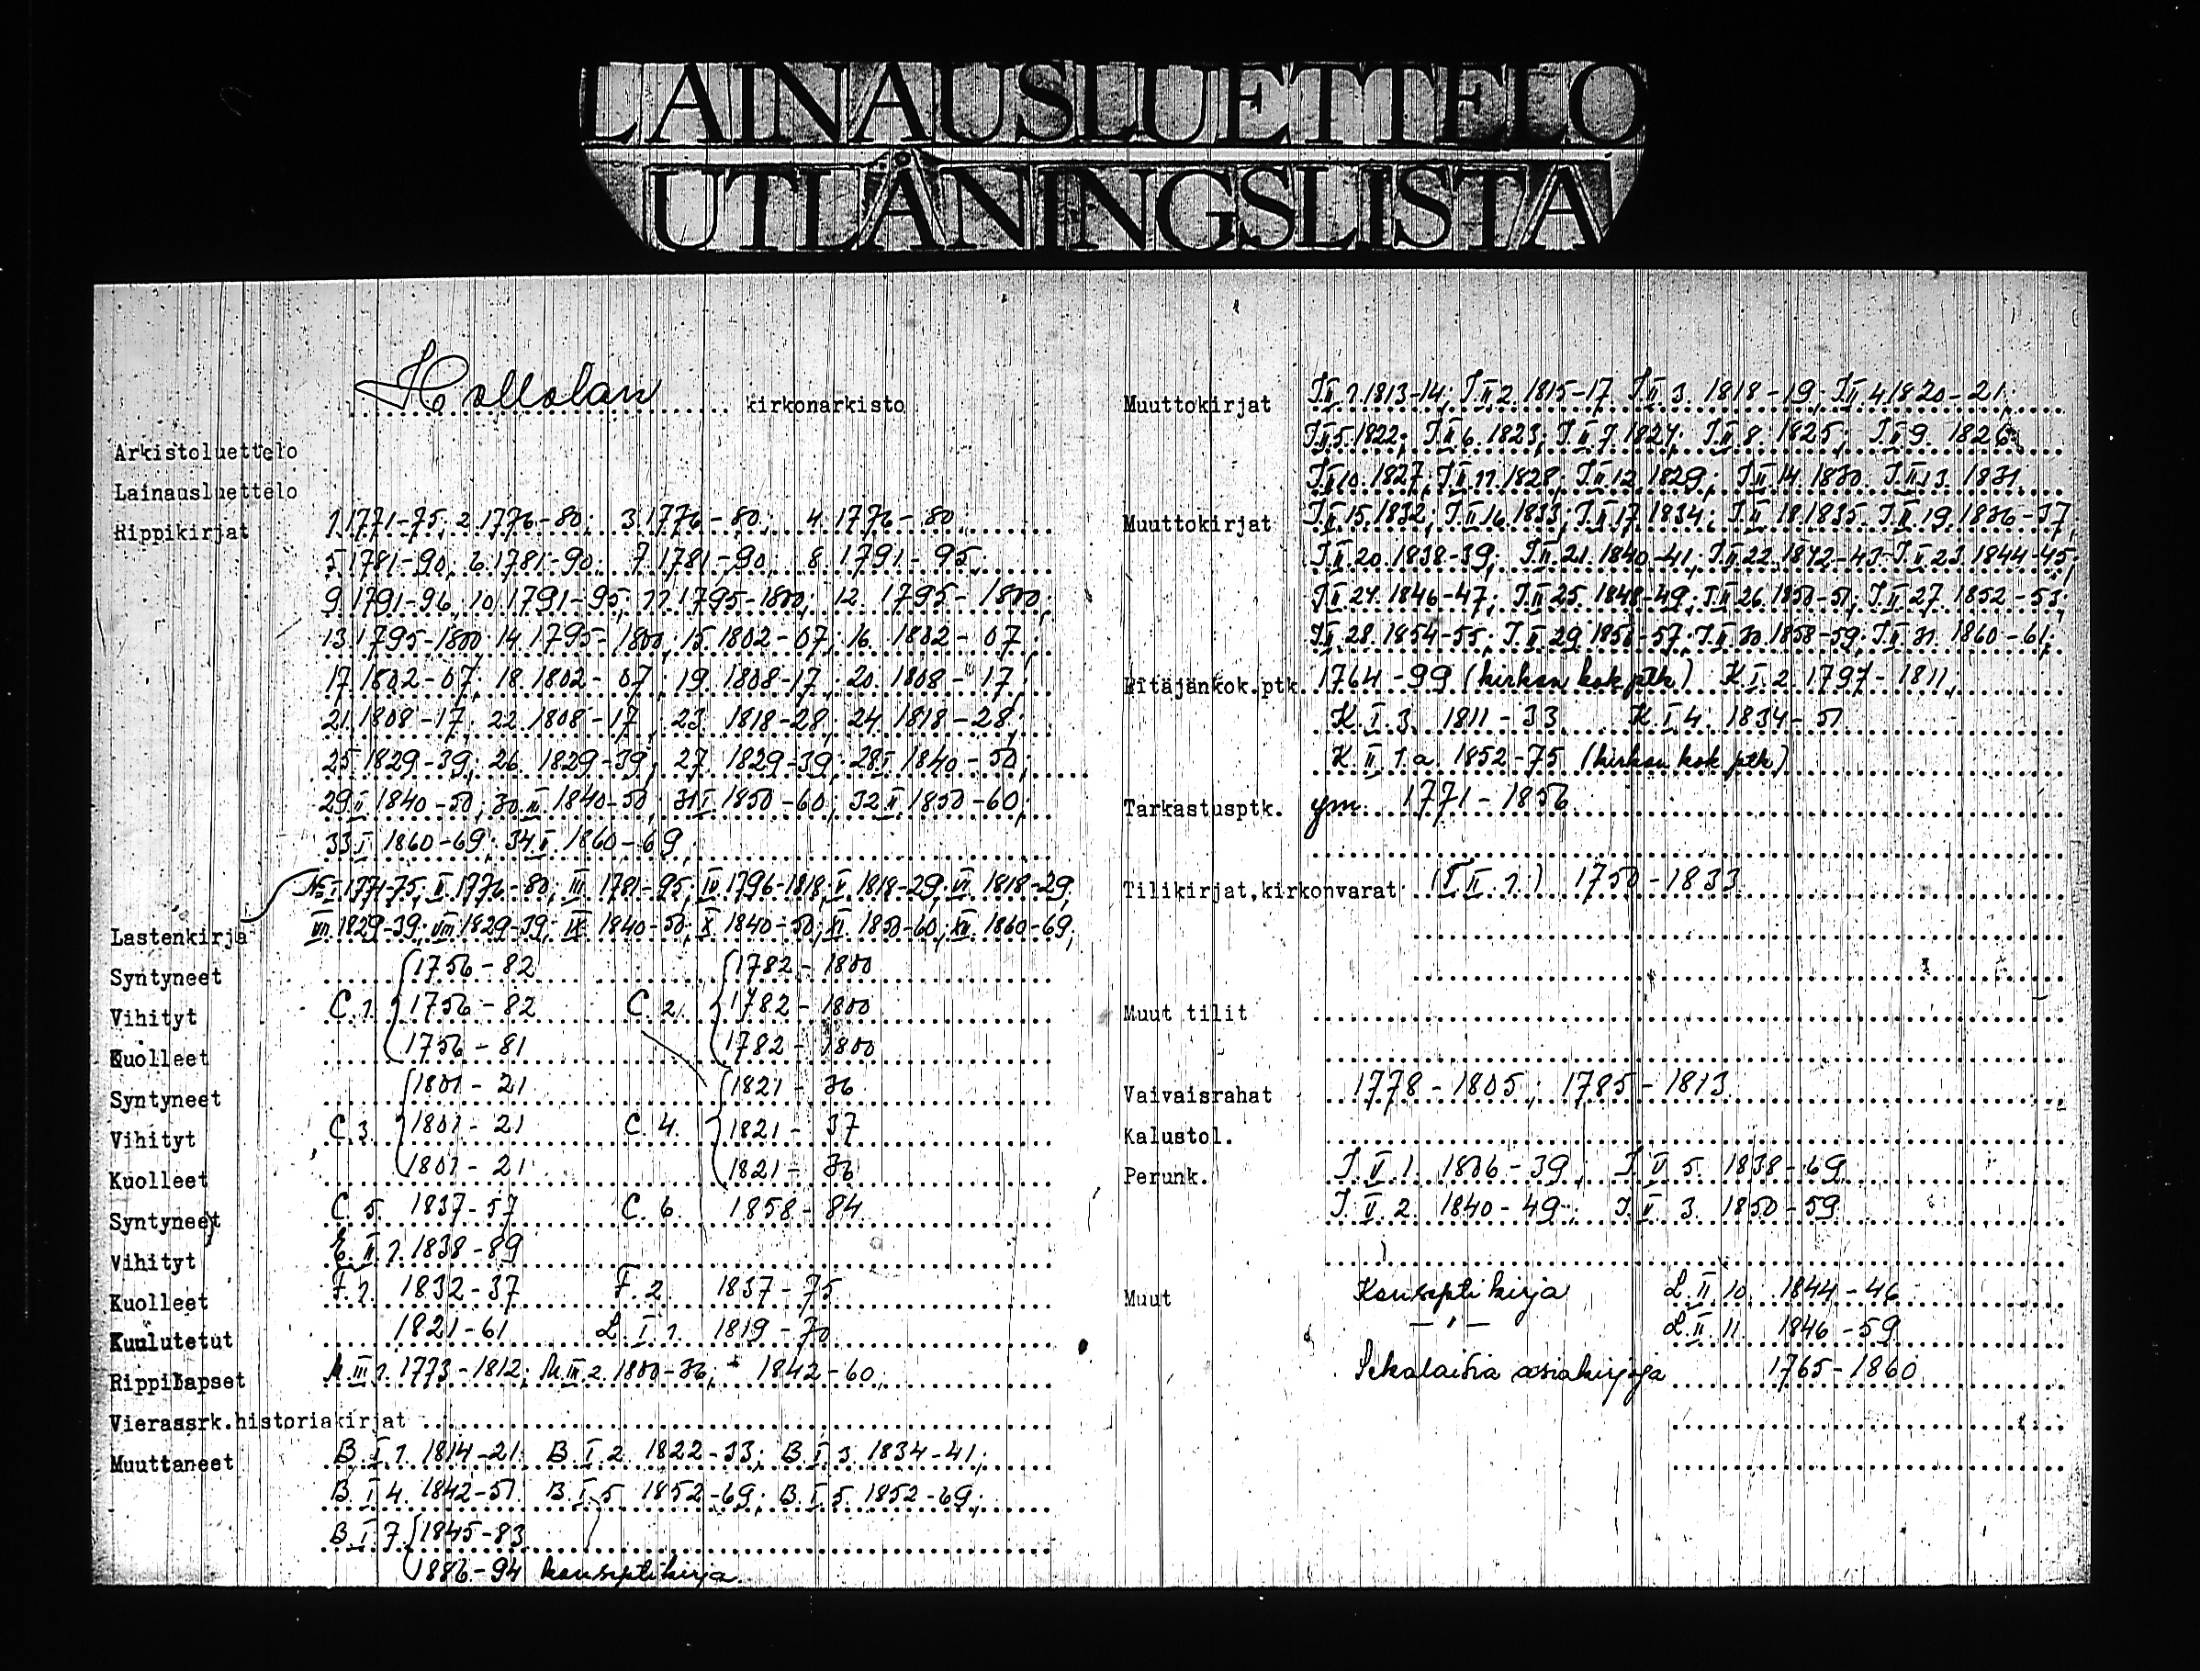 LAINAUSLUETTELO
UTLÅNINGSLISTA
Hollolan kirkonarkisto
Arkistoluettelo
Lainausluettelo
Rippikirjat 1.1771-75; 2.1776-80; 3.1776-80; 4.1776-80;
5.1781-90; 6.1781-90; 7.1781-90; 8.1791-95;
9.1791-96; 10.1791-95; 11.1795-1800; 12.1795-1800;
13.1795-1800; 14.1795-1800; 15.1802-07; 16.1802-07;
17.1802-07; 18.1802-07; 19.1808-17; 20.1808-17;
21.1808-17; 22.1808-17; 23.1818-28; 24.1818-28;
25.1829-39; 26.1829-39; 27.1829-39; 28.I 1840-50;
29.II 1840-50; 30.III 1840-50; 31.I 1850-60; 32.II 1850-60;
33.I 1860-69; 34.I 1860-69;
No I 1771-75; II 1776-80; III 1781-95; IV 1796-1818; V 1818-29; VI 1818-29;
Lastenkirja VII 1829-39; VIII 1829-39; IX 1840-50; X 1840-50; XI 1850-60; XII 1860-69;
Syntyneet 1756-82 1782-1800
Vihityt C.1. 1756-82 C.2. 1782-1800
Kuolleet 1756-81 1782-1800
Syntyneet 1801-21 1821-36
Vihityt C.3. 1801-21 C.4. 1821-37
Kuolleet 1801-21 1821-36
Syntyneet C.5. 1837-57 C.6. 1858-84
Vihityt E.II.1. 1838-89
Kuolleet F.1. 1832-37 F.2. 1837-75
Kuulutetut 1821-61 L.I.1. 1819-70
Rippilapset M.III.1. 1773-1812; M.III.2. 1800-36; 1842-60;
Vierassrk.historiakirjat
Muuttaneet B.I.1. 1814-21; B.I.2. 1822-33; B.I.3. 1834-41;
B.I.4. 1842-51; B.I.5. 1852-69; B.I.5. 1852-69;
B.I.7. 1845-83
1886-94 konseptikirja
Muuttokirjat I.II.1.1813-14; I.II.2.1815-17; I.II.3.1818-19; I.II.4.1820-21
I.II.5.1822; I.II.6.1823; I.II.7.1824; I.II.8.1825; I.II.9.1826;
I.II.10.1827; I.II.11.1828; I.II.12.1829; I.II.14.1830; I.II.13.1831
Muuttokirjat I.II.15.1832; I.II.16.1833; I.II.17.1834; I.II.18.1835; I.II.19.1836-37;
I.II.20.1838-39; I.II.21.1840-41; I.II.22.1842-43; I.II.23.1844-45;
I.II.24.1846-47; I.II.25.1848-49; I.II.26.1850-51; I.II.27.1852-53;
I.II.28.1854-55; I.II.29.1856-57; I.II.30.1858-59; I.II.31.1860-61;
Pitäjänkok.ptk. 1764-99 (kirkon kok ptk) K I.2. 1797-1811;
K.I.3. 1811-33 K.I.4. 1834-51
K.II.1.a. 1852-75 (kirkon kok ptk)
Tarkastusptk. ym. 1771-1856
Tilikirjat,kirkonvarat 1750-1833
Muut tilit
Vaivaisrahat 1778-1805; 1785-1813
Kalustol.
Perunk. I.V.1. 1836-39; I.V.5. 1838-69
I.V.2. 1840-49; I.V.3. 1850-59
Muut Konseptikirja L.II.10. 1844-46
-"- L.II.11. 1846-59
Sekalaisia asiakirjoja 1765-1860